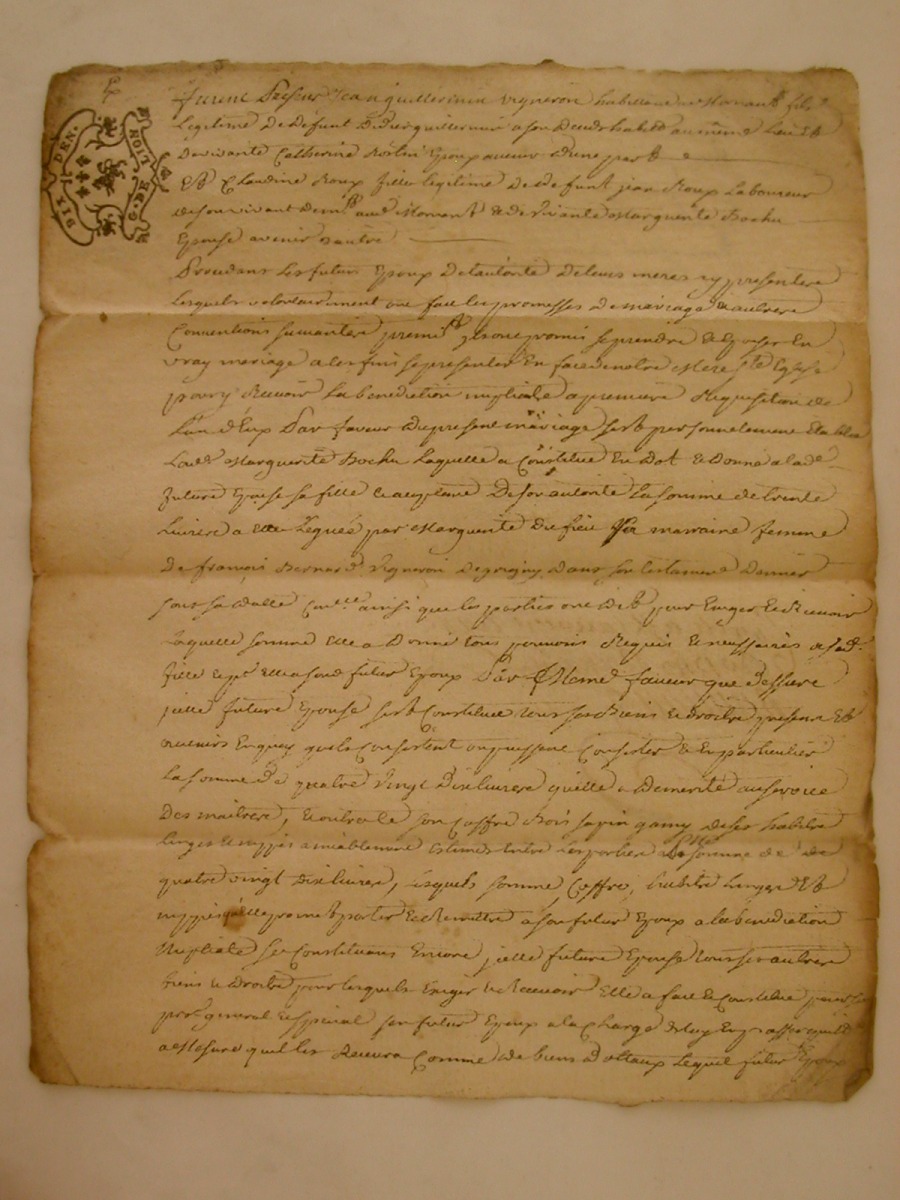 DIX DEN.
G. DE
ROIT
furent presens Jean guillermin vigneron habitant a Mornant fils
Legitime De Defunt Didier guillermin a son vivant habitt au même Lieu Et
De vivante Catherine Epoux avenir d'une part
Et Claudine Roux fille legitime De defunt jean Roux Laboureur
de son vivant Mornant & de vivante Marguerite Bochu
Epouse avenir d'autre
Procedans Les futurs Epoux De l'autorité De leurs meres cy presentes
Lesquels volontairement ont fait les promesses De mariage & autres
Conventions suivantes premt ils ont promis se prendre & Epouser En
vray mariage a les fins se presenter En face de notre Mere ste Eglise
pour y Recevoir La benediction nuptiale a premiere Requisition de
L'un d'Eux Par faveur du present mariage sest personnelement Etablie
Lade Marguerite Bochu Laquelle a Constitué En Dot & Donné a lade
future Epouse sa fille De son autorité La somme de trente
Livres a Elle Leguée par Marguerite Dufieu sa marraine femme
De françois Bernard Vigneron De grigny Dans son testament Dernier
sous sa datte ainsi que les parties ont Dit pour Exiger & Recevoir
Laquelle somme Elle a Donné tous pouvoirs Requis & necessaires a sade
fille & a son futur Epoux Par Meme faveur que Dessus
jcelle future Epouse sest Constitué tous ses Biens & droits presens Et
avenirs En quoy qu'ils Consistent ou puissent Consister & En particulier
La somme De quatre vingt Dix livres qu'elle a De merité au service
Des maitres, & outre ce son Coffre Bois sapin garny De ses habits
linges & nippes amiablement Estimés Entre Les parties somme de
quatre vingt Dix livres, lesquels somme, Coffre, habits Linges Et
nippes qu'elle promet porter & Remettre a son futur Epoux a la benediction
Nuptiale se Constituant Encore jcelle future Epouse tous ses autres
biens & Droits pour lesquels Exiger & Recevoir Elle a fait & Constitué pour son
procr general & special son futur Epoux a la Charge De luy En passer quitt
a Mesure quil les Recevra Comme de biens Dottaux Lequel futur Epoux